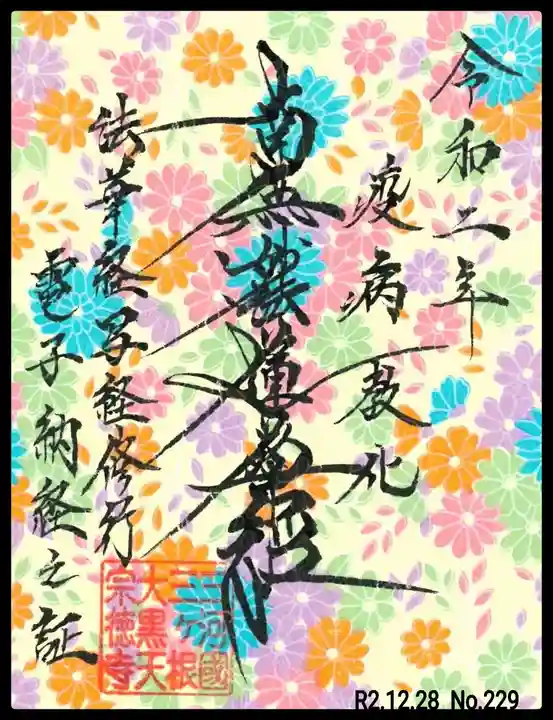 令和二年
疫病教化
南無妙法蓮華経
法華経写経修行
電子納経之証
三河國
三ヶ根
大黒天
宗徳寺
R2,12,28 No,229